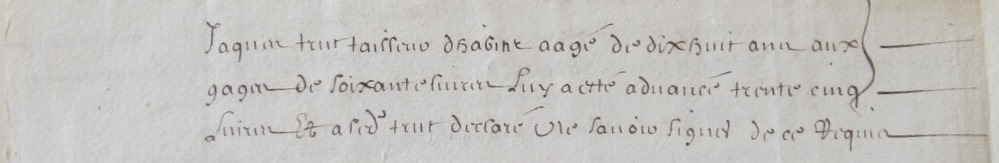 Jaques trut tailleur dhabitz aagé de dix huit ans aux
gages de soixante livres Luy a esté advancé trente cinq
Livres Et a led.^t trut declaré Ne savoir signer de ce Requis